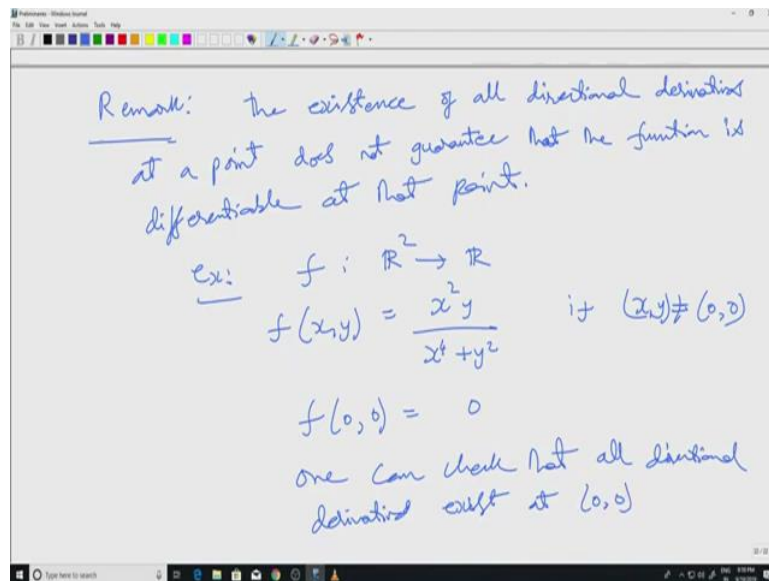 Preliminaries - Windows Journal
File Edit View Insert Actions Tools Help
Remark: the existence of all directional derivatives
at a point does not guarantee that the function is
differentiable at that point.
ex: f : ℝ² → ℝ
f(x,y) = x²y / x⁴+y² if (x,y) ≠ (0,0)
f(0,0) = 0
one can check that all directional
derivatives exist at (0,0)
Type here to search